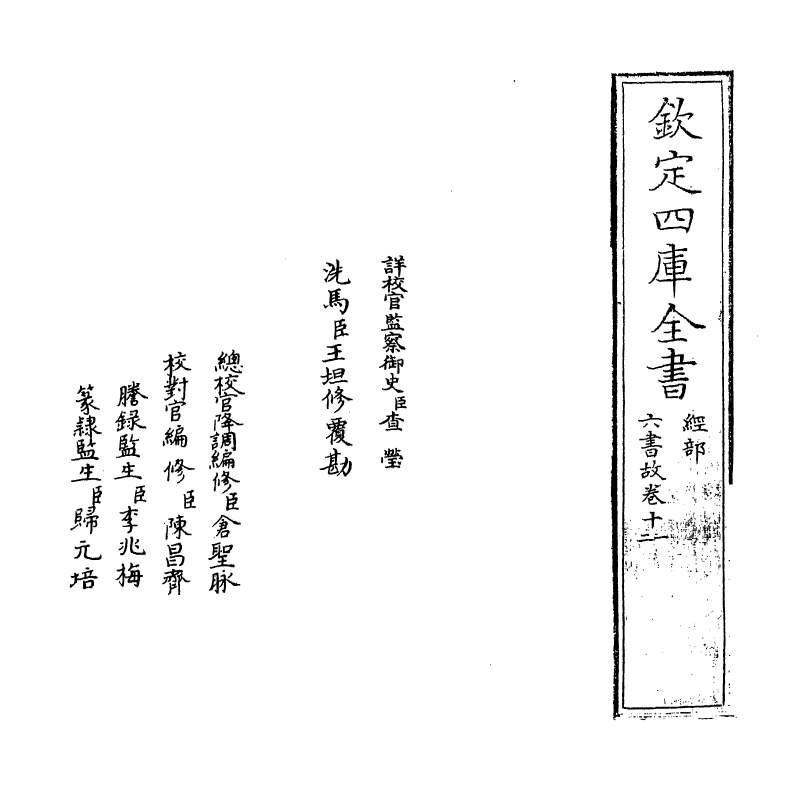 欽定四庫全書
經部
六書故卷十二
詳校官監察御史臣查瑩
洗馬臣王坦修覆勘
總校官降調編修臣倉聖脉
校對官編修臣陳昌齊
謄錄監生臣李兆梅
篆隸監生臣歸元培